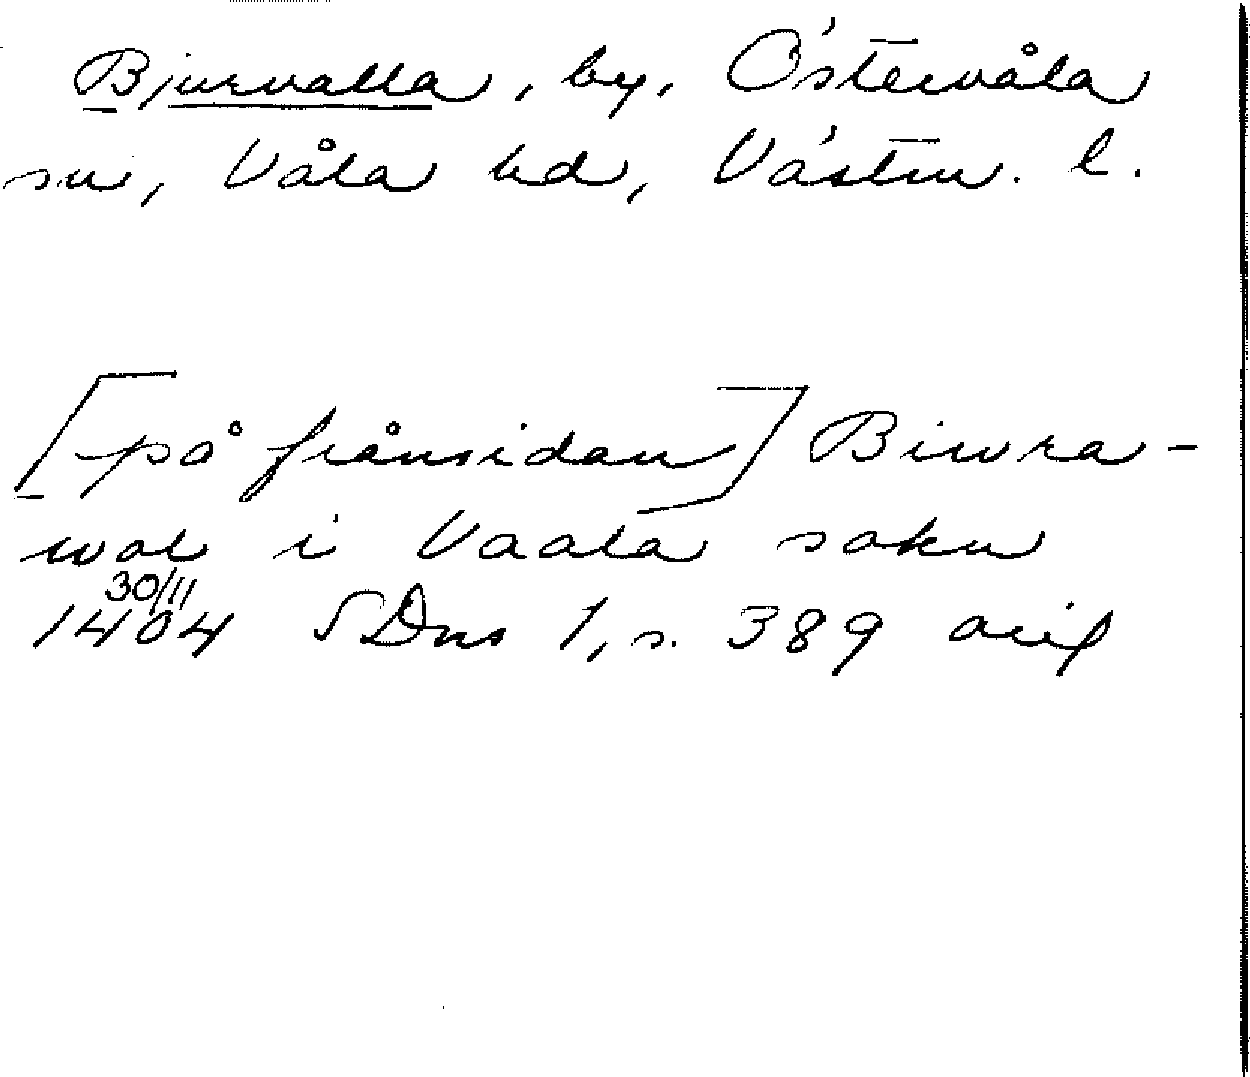 Bjurvalla, by, Östervåla
sn, Våla hd, Västm. l.
[på frånsidan] Biwra-
wal i Vaala sokn
30/11
1404 SDns 1, s. 389 avs